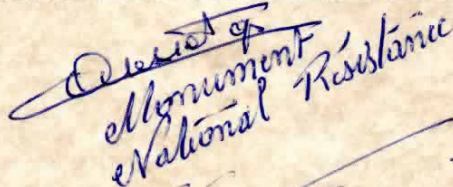 Monument
National Résistance